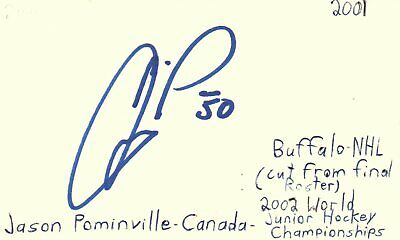 2001
JP
50
Buffalo-NHL
(cut from final
Roster)
2002 World
Jason Pominville-Canada- Junior Hockey
Championships